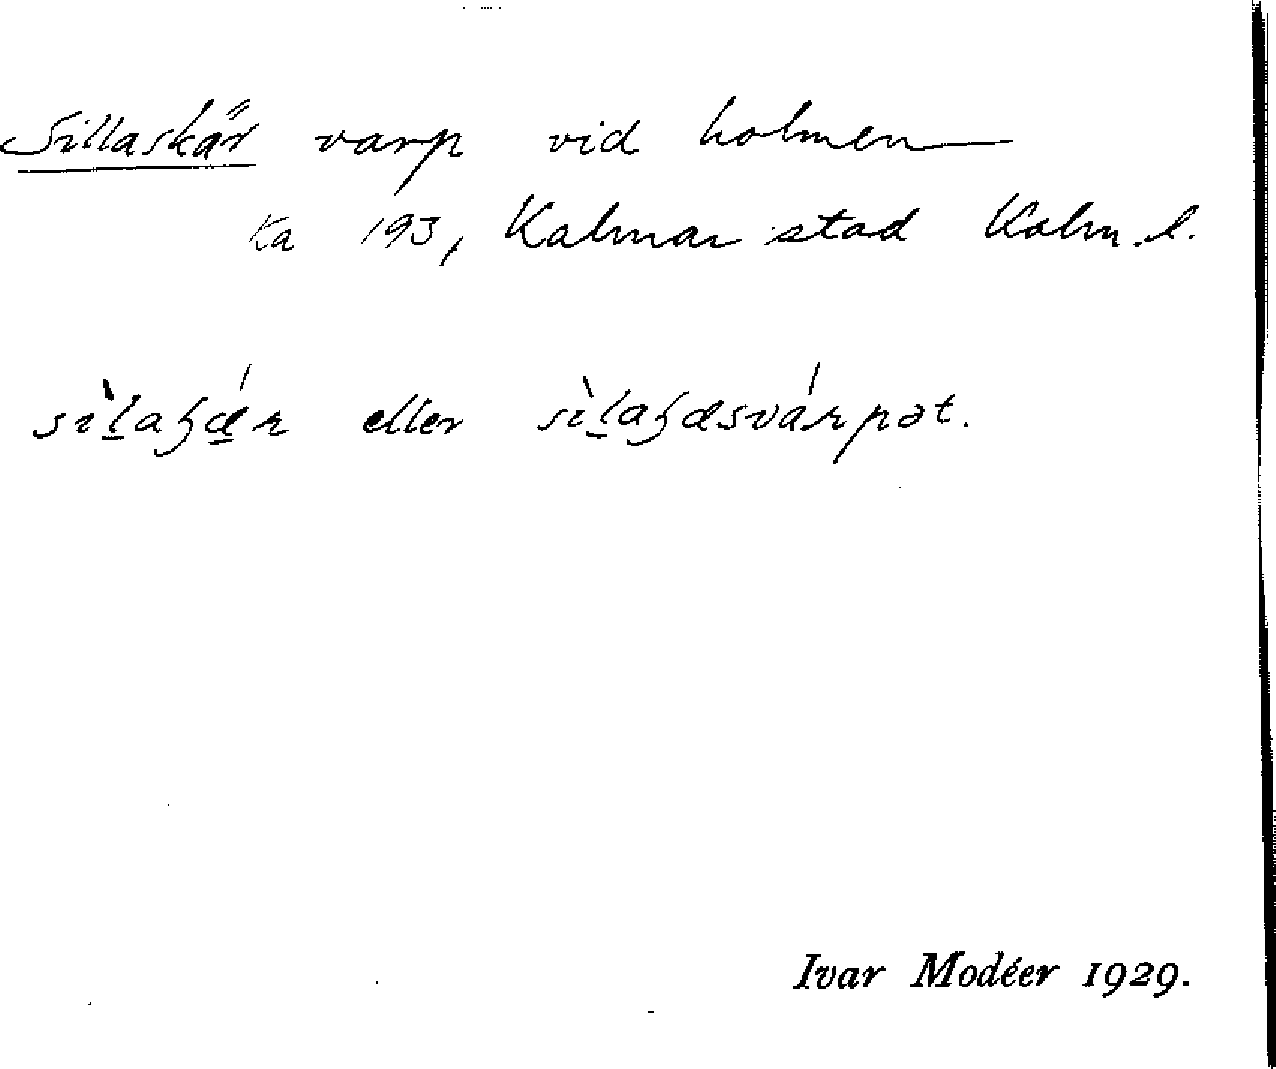 Sillaskär varp vid holmen
Ka 193, Kalmar stad Kalm. l.
sìl̲aʒǽ̲r eller sìl̲aʒæsvárpət.
Ivar Modéer 1929.